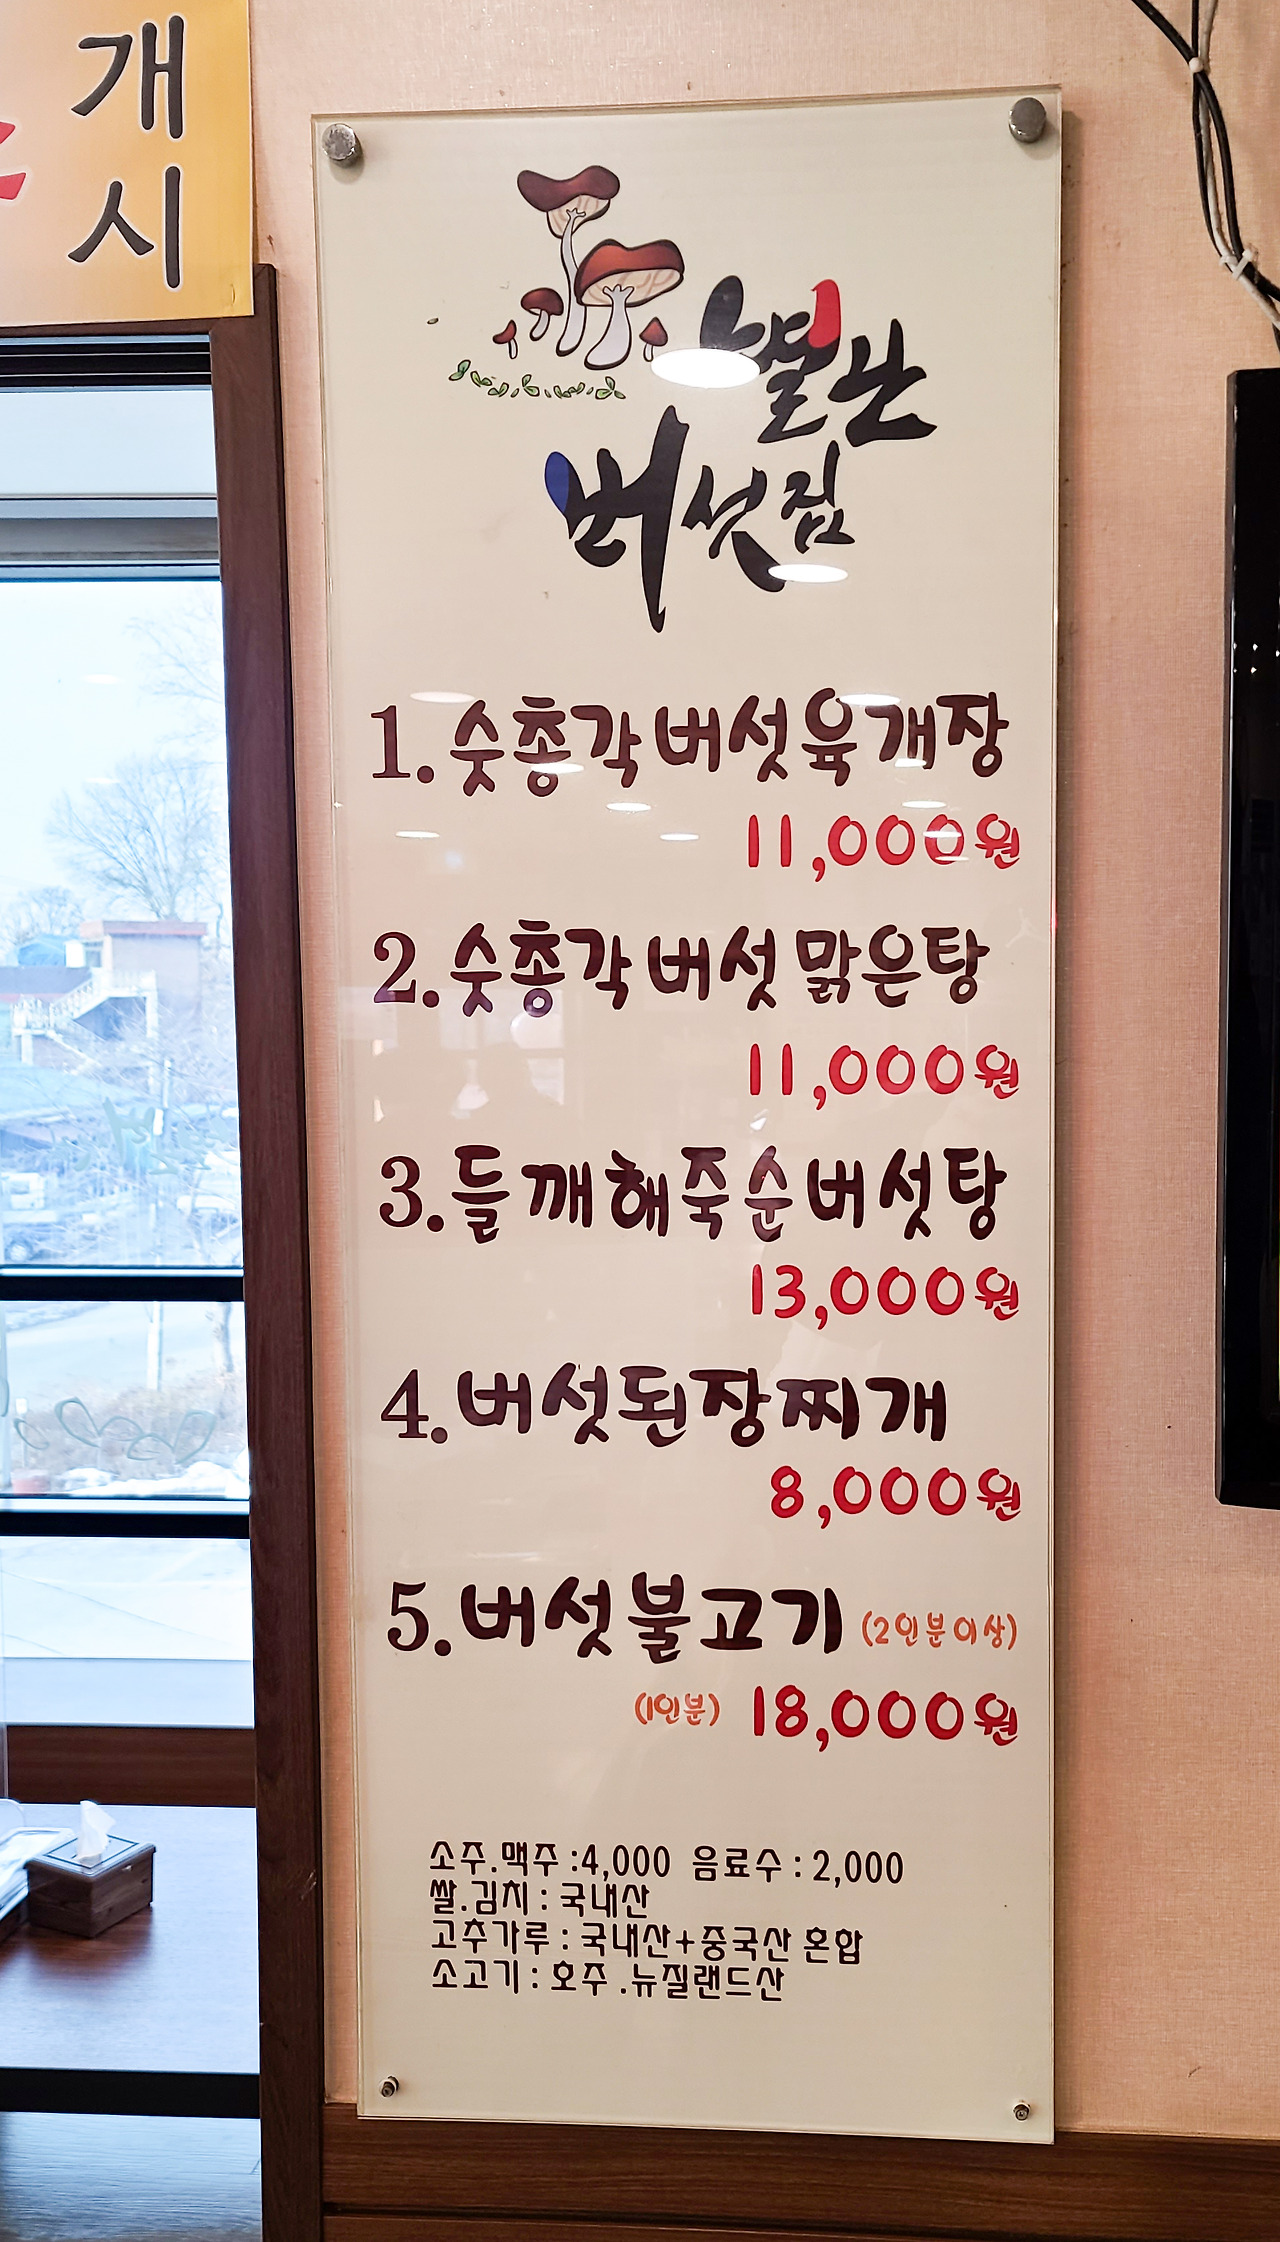 개
시
버섯집
1. 숫총각버섯육개장
11,000원
2. 숫총각버섯맑은탕
11,000원
3. 들깨해죽순버섯탕
13,000원
4. 버섯된장찌개
8,000원
5. 버섯불고기 (2인분이상)
(1인분) 18,000원
소주.맥주 :4,000 음료수 : 2,000
쌀.김치 : 국내산
고추가루 : 국내산+중국산 혼합
소고기 : 호주 .뉴질랜드산